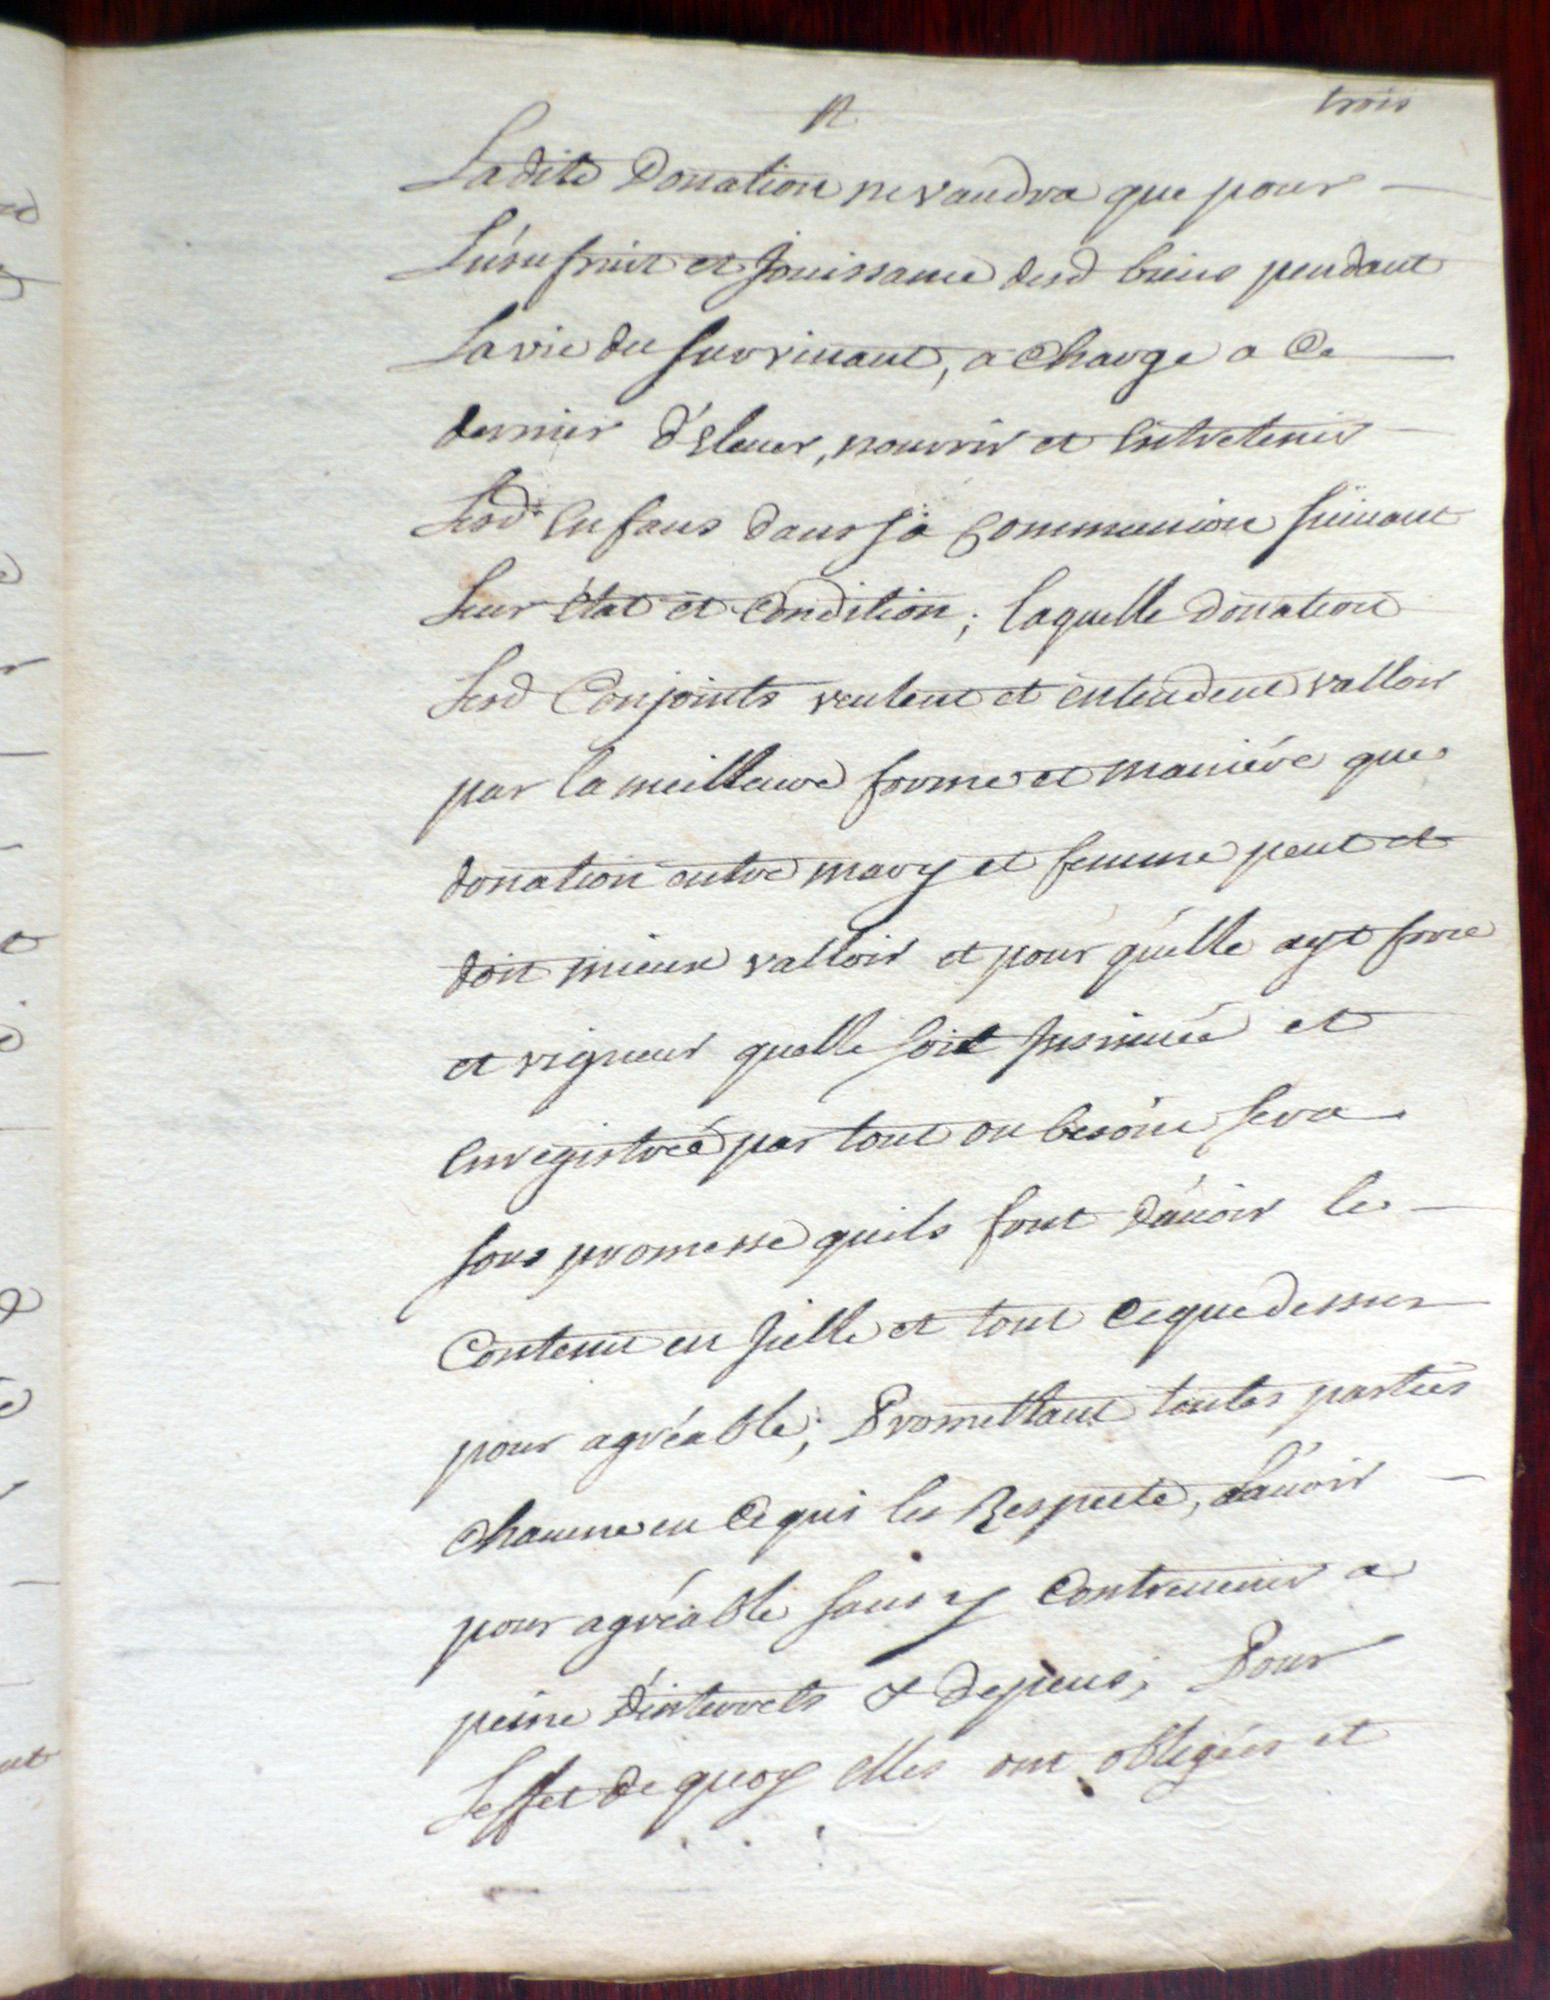 trois
Ladite Donation ne vaudra que pour
L'úsufruit et Jouissance desd biens pendant
La vie du survivant, a Charge a Ce
dernier d'Eleuer, nourrir et Entretenir
Lesd. Enfans dans sa Communion suiuant
Leur Etat et Condition; laquelle donation
Lesd Conjoints veulent et entendent valloir
par la meilleure forme et maniére que
donation entre mary et femme peut et
doit mieux valloir et pour qu'elle ayt force
et vigueur quelle soit Insinuée et
Enregistreé par tout ou besoin sera
sous promesse quils font d'auoir le
Contenu en Jcelle et tout Ceque dessus
pour agréable; Promettant toutes parties
Chacune en Ce qui les Respecte, d'auoir
pour agréable sans y Contreuenir a
peine d'interrets & depens; Pour
L'effet de quoy elles ont obligées et